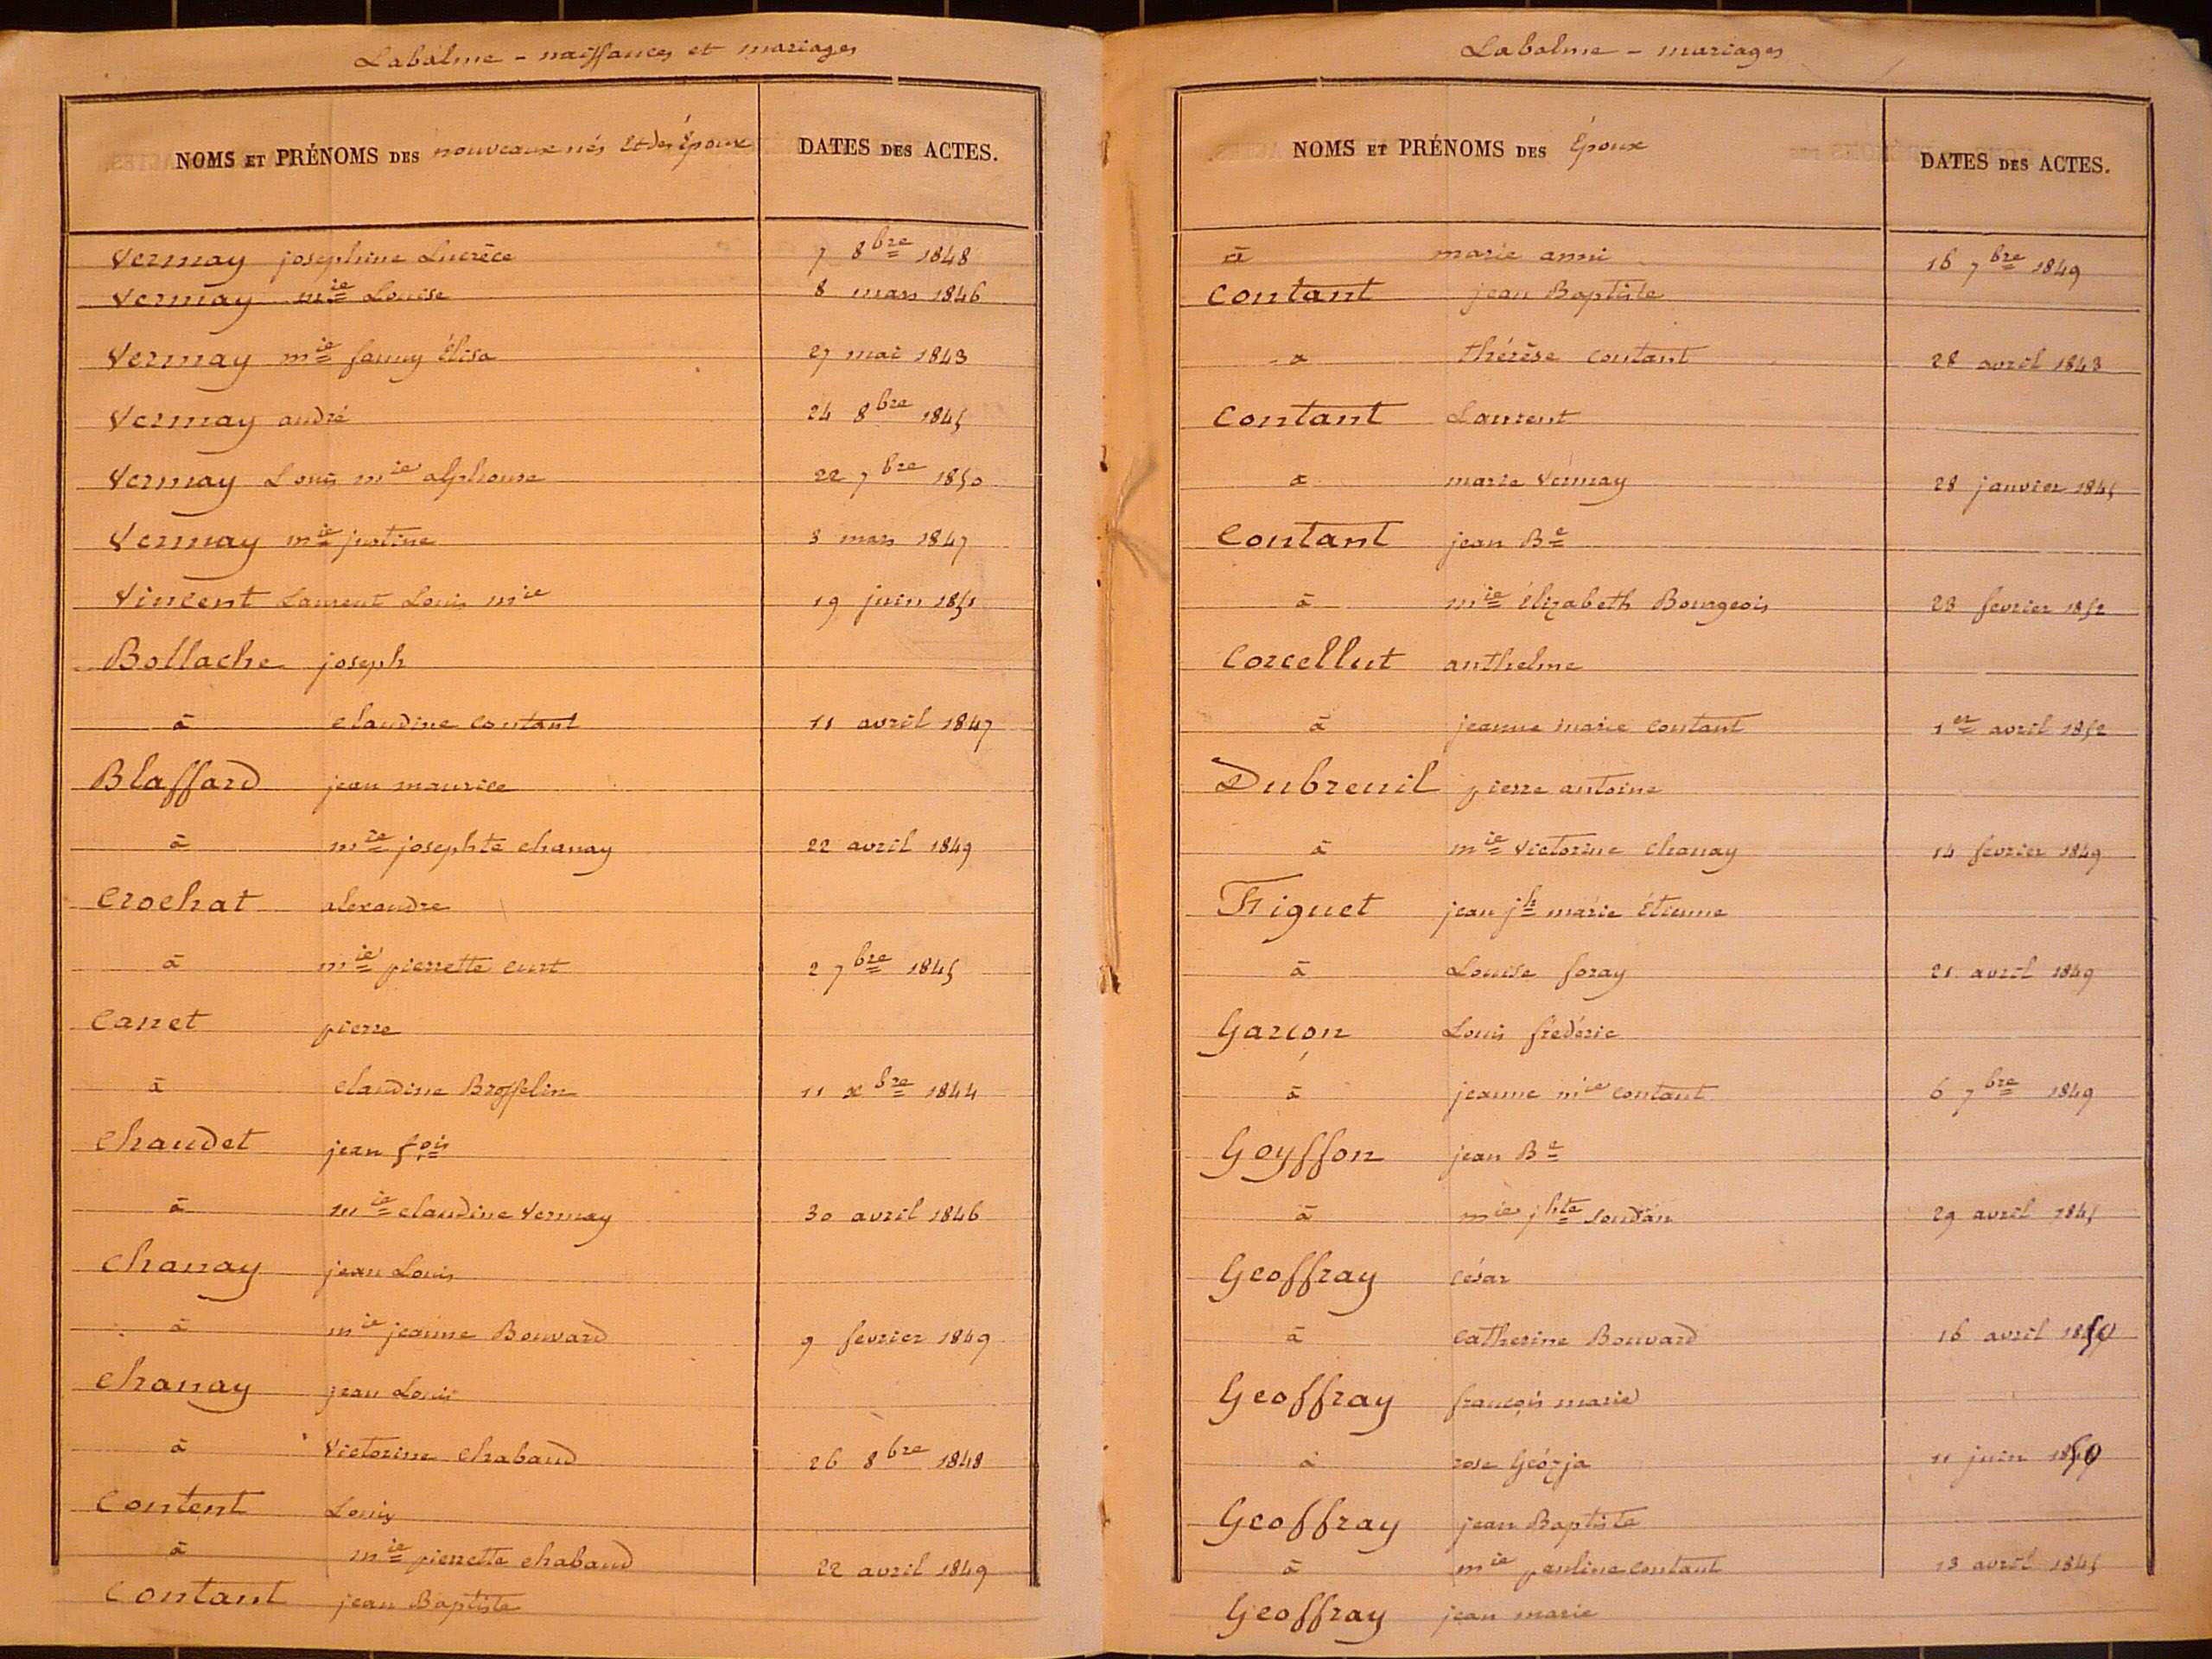 Labalme - naissances et mariages
NOMS ET PRÉNOMS DES nouveaux nés et des Époux DATES DES ACTES.
Vermay josephine Lucrèce 7 8bre 1848
Vermay mie Louise 8 mars 1846
Vermay mie fanny Élisa 27 mai 1843
Vermay andré 24 8bre 1845
Vermay Louis mie alphonse 22 7bre 1850
Vermay mie justine 3 mars 1847
Vincent Laurent Louis mie 19 juin 1851
Bollache joseph
à claudine contant 11 avril 1847
Blaffard jean maurice
à mie josephte chanay 22 avril 1849
Crochat alexandre
à mie pierrette curt 2 7bre 1845
Canet pierre
à claudine Brosselin 11 xbre 1844
Chaudet jean fois
à mie claudine Vermay 30 avril 1846
Chanay jean Louis
à mie jeanne Bouvard 9 fevrier 1849
Chanay jean Louis
à Victorine Chabaud 26 8bre 1848
Content Louis
à mie pierrette chabaud 22 avril 1849
Contant jean Baptiste
Labalme - mariages
NOMS ET PRÉNOMS DES Époux DATES DES ACTES.
à marie anni 16 7bre 1849
Contant jean Baptiste
à thérèse contant 28 avril 1843
Contant Laurent
à marie Vermay 28 janvier 1845
Contant jean Bte
à mie Élizabeth Bourgeois 23 fevrier 1852
Corcellut anthelme
à jeanne marie contant 1er avril 1852
Dubreuil pierre antoine
à mie Victorine chanay 14 fevrier 1849
Figuet jean jh marie Étienne
à Louise foray 21 avril 1849
Garçon Louis fréderic
à jeanne mie contant 6 7bre 1849
Goyffon jean Bte
à mie jhte soudan 29 avril 1845
Geoffray césar
à catherine Bouvard 16 avril 1850
Geoffray françois marie
à rose Géorja 11 juin 1850
Geoffray jean Baptiste
à mie pauline contant 13 avril 1845
Geoffray jean marie